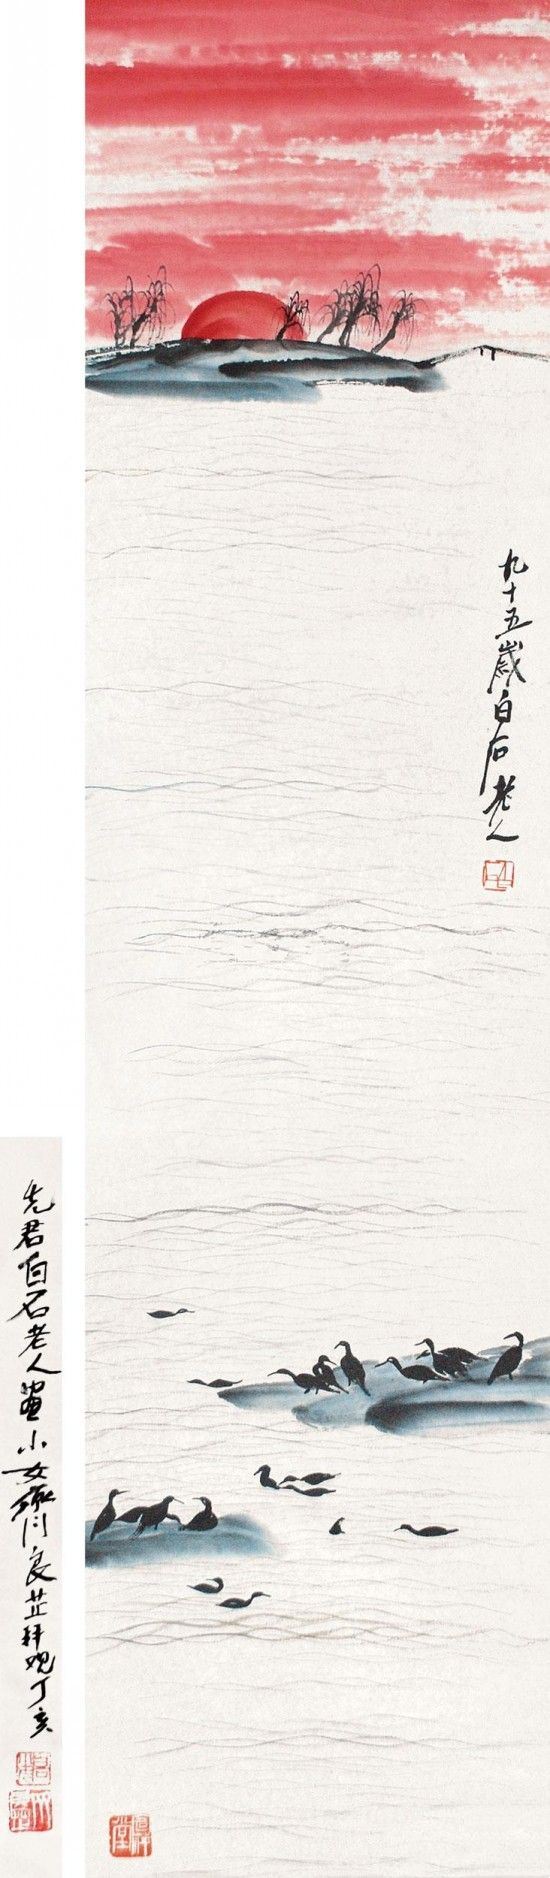 九十五岁白石老人
先君白石老人画小女齐良芷拜观丁亥